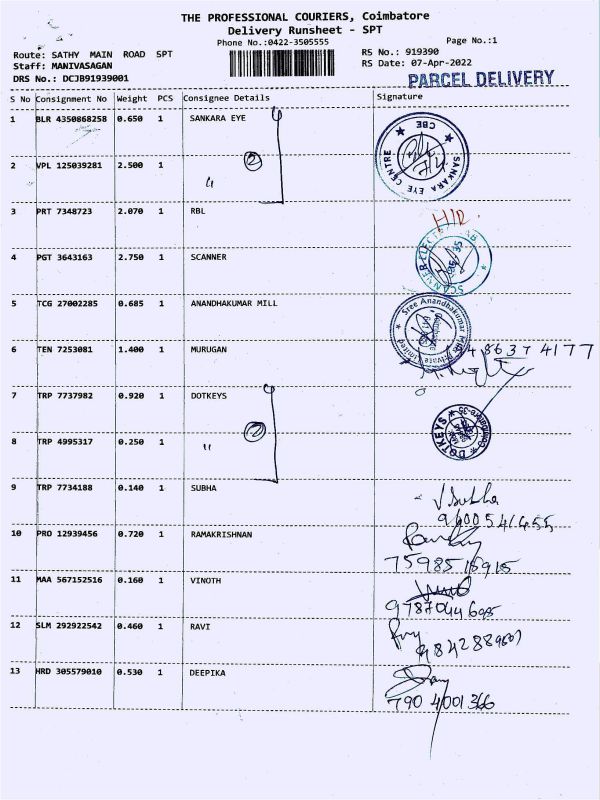 THE PROFESSIONAL COURIERS, Coimbatore
Delivery Runsheet - SPT
Phone No.:0422-3505555
Page No.:1
Route: SATHY MAIN ROAD SPT
RS No.: 919390
Staff: MANIVASAGAN
RS Date: 07-Apr-2022
DRS No.: DCJB91939001
PARCEL DELIVERY
S No Consignment No Weight PCS Consignee Details Signature
1 BLR 4350868258 0.650 1 SANKARA EYE
SANKARA EYE CENTRE ★ CBE ★
2
2 VPL 125039281 2.500 1 "
3 PRT 7348723 2.070 1 RBL
4 PGT 3643163 2.750 1 SCANNER
5 TCG 27002285 0.685 1 ANANDHAKUMAR MILL
Sree Anandhakumar Mills Private Limited
6 TEN 7253081 1.400 1 MURUGAN
7 TRP 7737982 0.920 1 DOTKEYS
2
DOTKEYS ★ COIMBATORE-35
8 TRP 4995317 0.250 1 "
9 TRP 7734188 0.140 1 SUBHA
Subha
9600541455
10 PRO 12939456 0.720 1 RAMAKRISHNAN
7598515915
11 MAA 567152516 0.160 1 VINOTH
9787044695
12 SLM 292922542 0.460 1 RAVI
13 HRD 305579010 0.530 1 DEEPIKA
7904001366